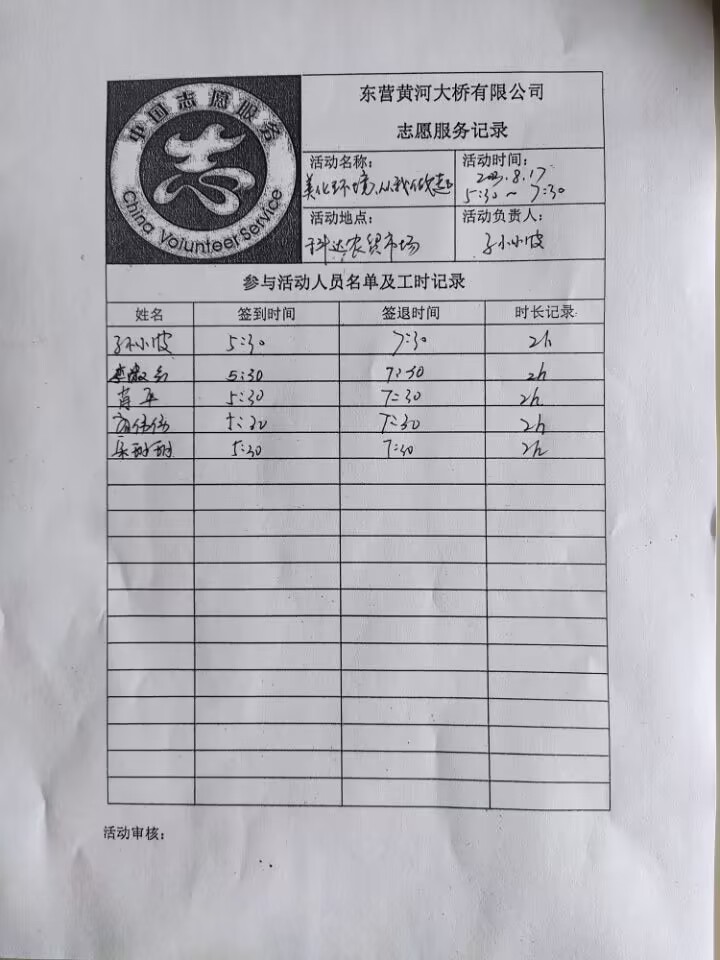 中国志愿服务
China Volunteer Service
东营黄河大桥有限公司
志愿服务记录
活动名称：
美化环境，从我做起
活动时间：
2023.8.17
5:30～7:30
活动地点：
科达农贸市场
活动负责人：
孙小波
参与活动人员名单及工时记录
姓名 签到时间 签退时间 时长记录
孙小波 5:30 7:30 2h
5:30 7:30 2h
肖平 5:30 7:30 2h
伟伟 5:30 7:30 2h
5:30 7:30 2h
活动审核：